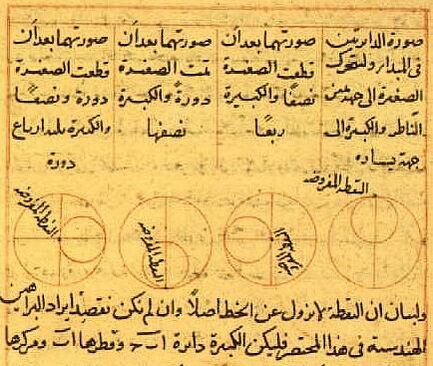 صورة الدايرتين
فى المبدا، ولتتحرك
الصغيرة الى جهة يمين
الناظر والكبيرة الى
جهة يساره
صورتهما بعد أن
قطعت الصغيرة
نصفًا والكبيرة
ربعًا
صورتهما بعد أن
تمت الصغيرة
دورةً والكبيرة
نصفها
صورتهما بعد أن
قطعت الصغيرة
دورة ونصفًا
والكبيرة ثلثة ارباع
دورة
النقطة المفروضة
النقطة المفروضة
النقطة المفروضة
ولبيان ان النقطة لا تزول عن الخط اصلًا وان لم نكن نقصد ايراد البراهين
الهندسية فى هذا المختصر فليكن الكبيرة دائرة اب ح وقطرها اب ومركزها